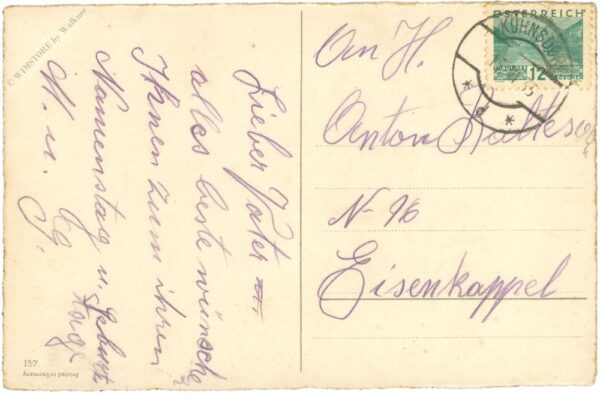 © WIMSTORE by Walkner
Lieber Vater
alles beste wünsche
Ihnen zum ihren
Namenstag u. Geburts
tage
M. u.
An H.
Anton
N- 96
Eisenkappel
ÖSTERREICH
12
KÜHNSD
157
Printed in Germany